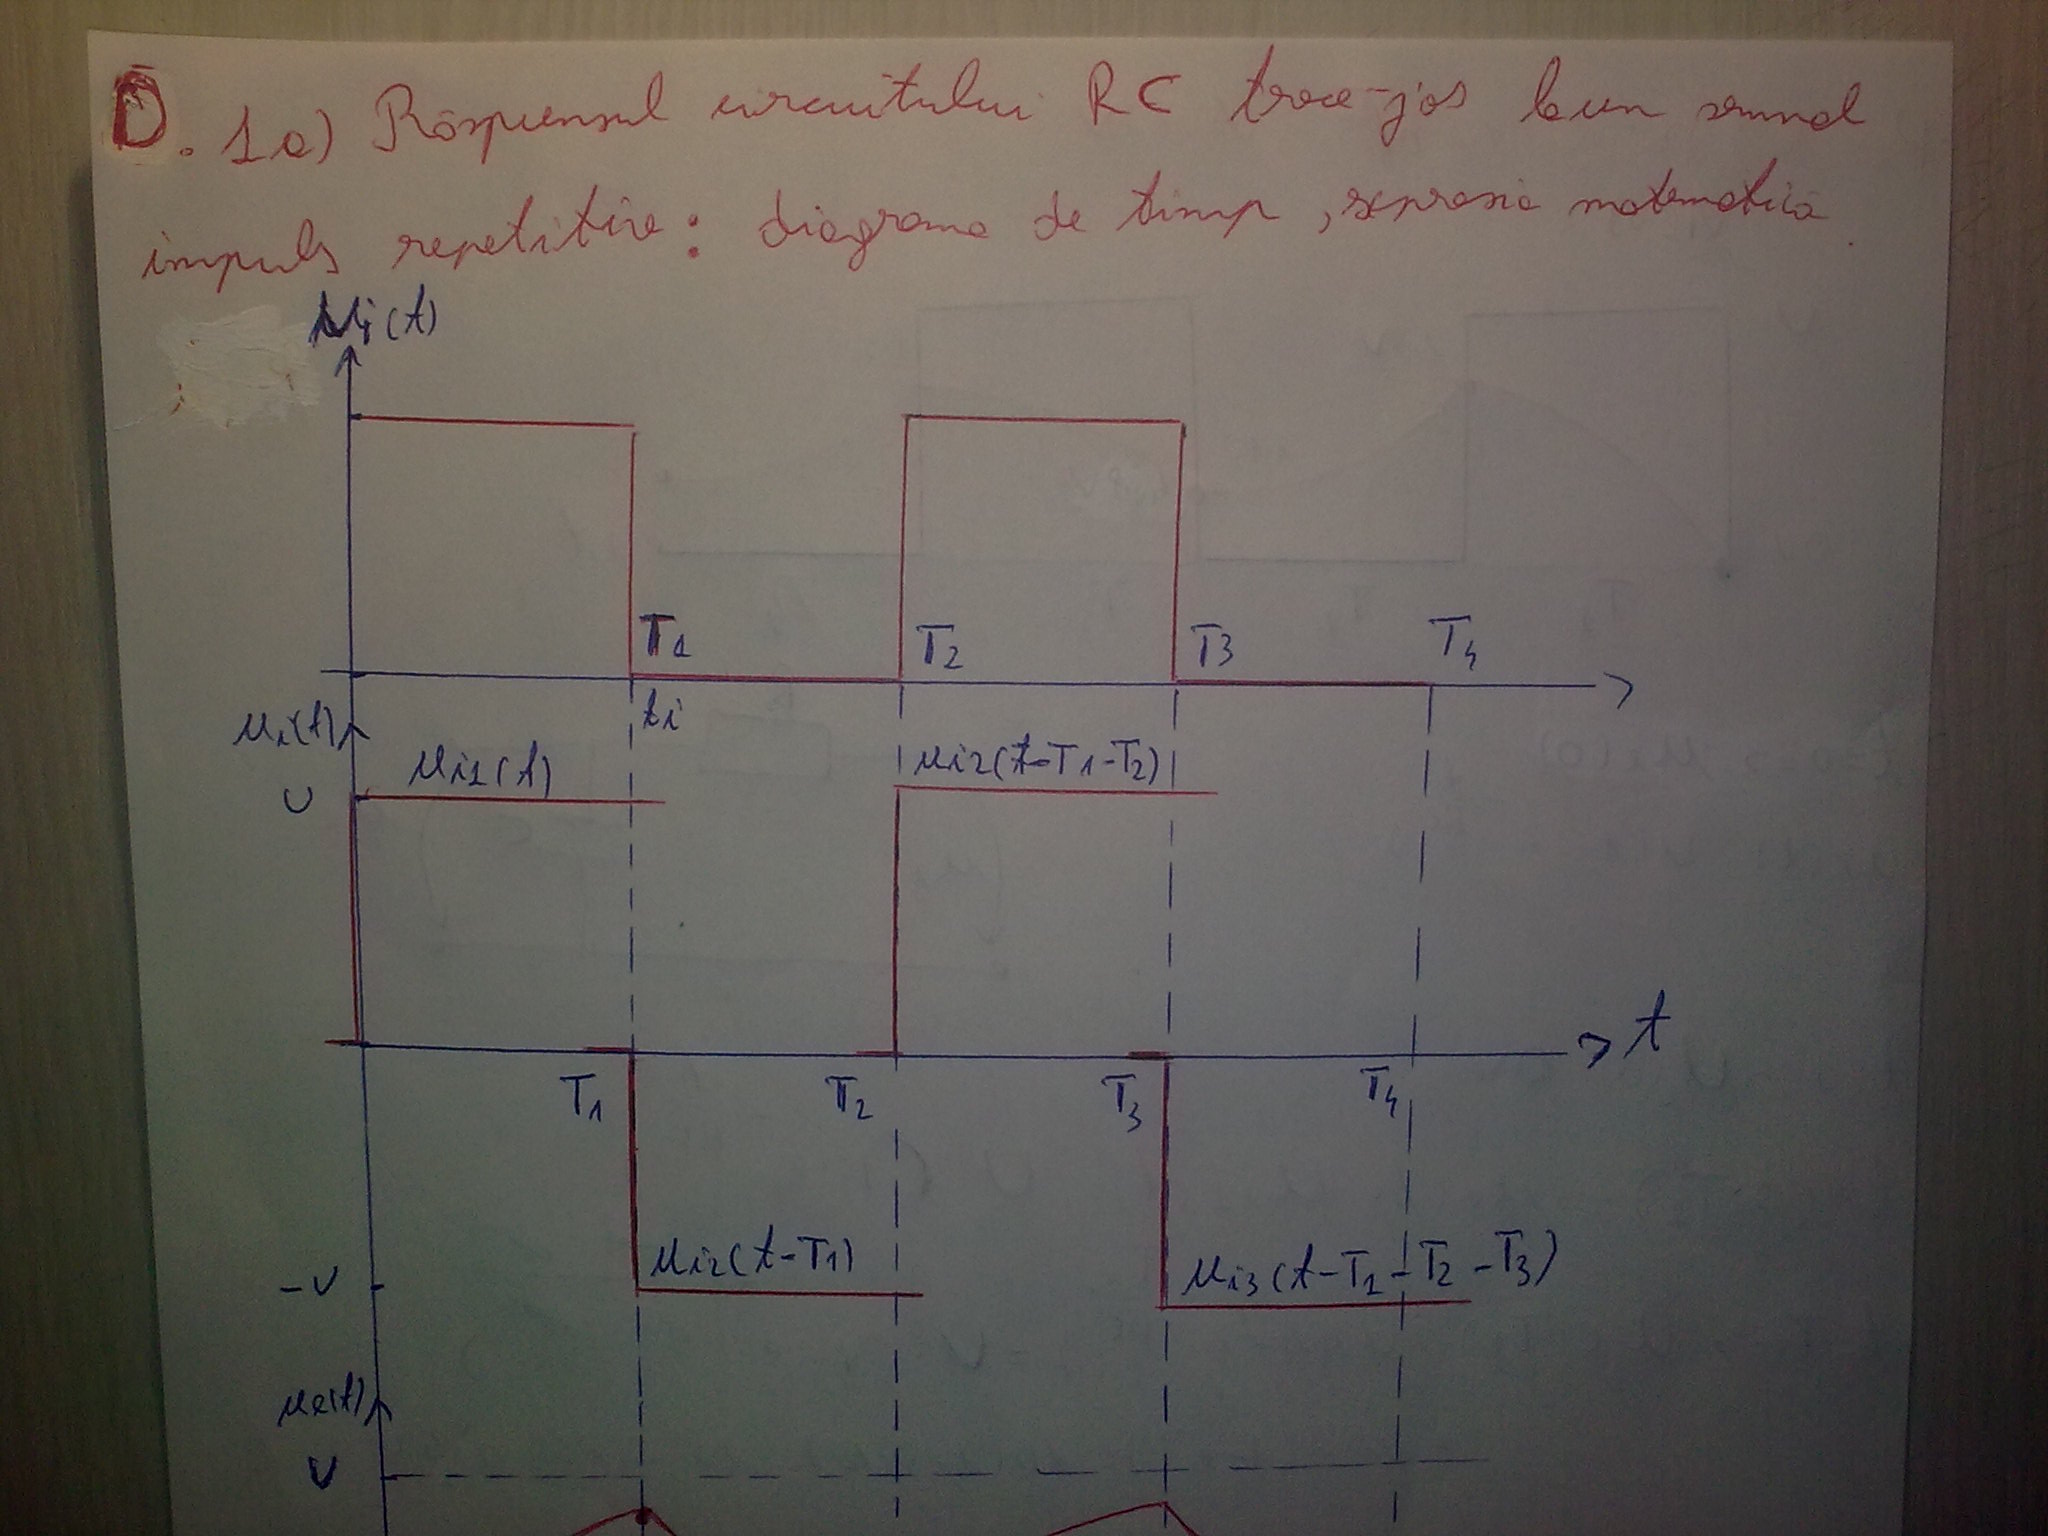 D. 1a) Răspunsul circuitului RC trece-jos la un semnal
impuls repetitiv: diagrama de timp, expresia matematică.
ui(t)
T1 T2 T3 T4
ti
ui(t)
ui1(t) ui2(t-T1-T2)
U
t
T1 T2 T3 T4
ui2(t-T1) ui3(t-T1-T2-T3)
-U
ue(t)
U